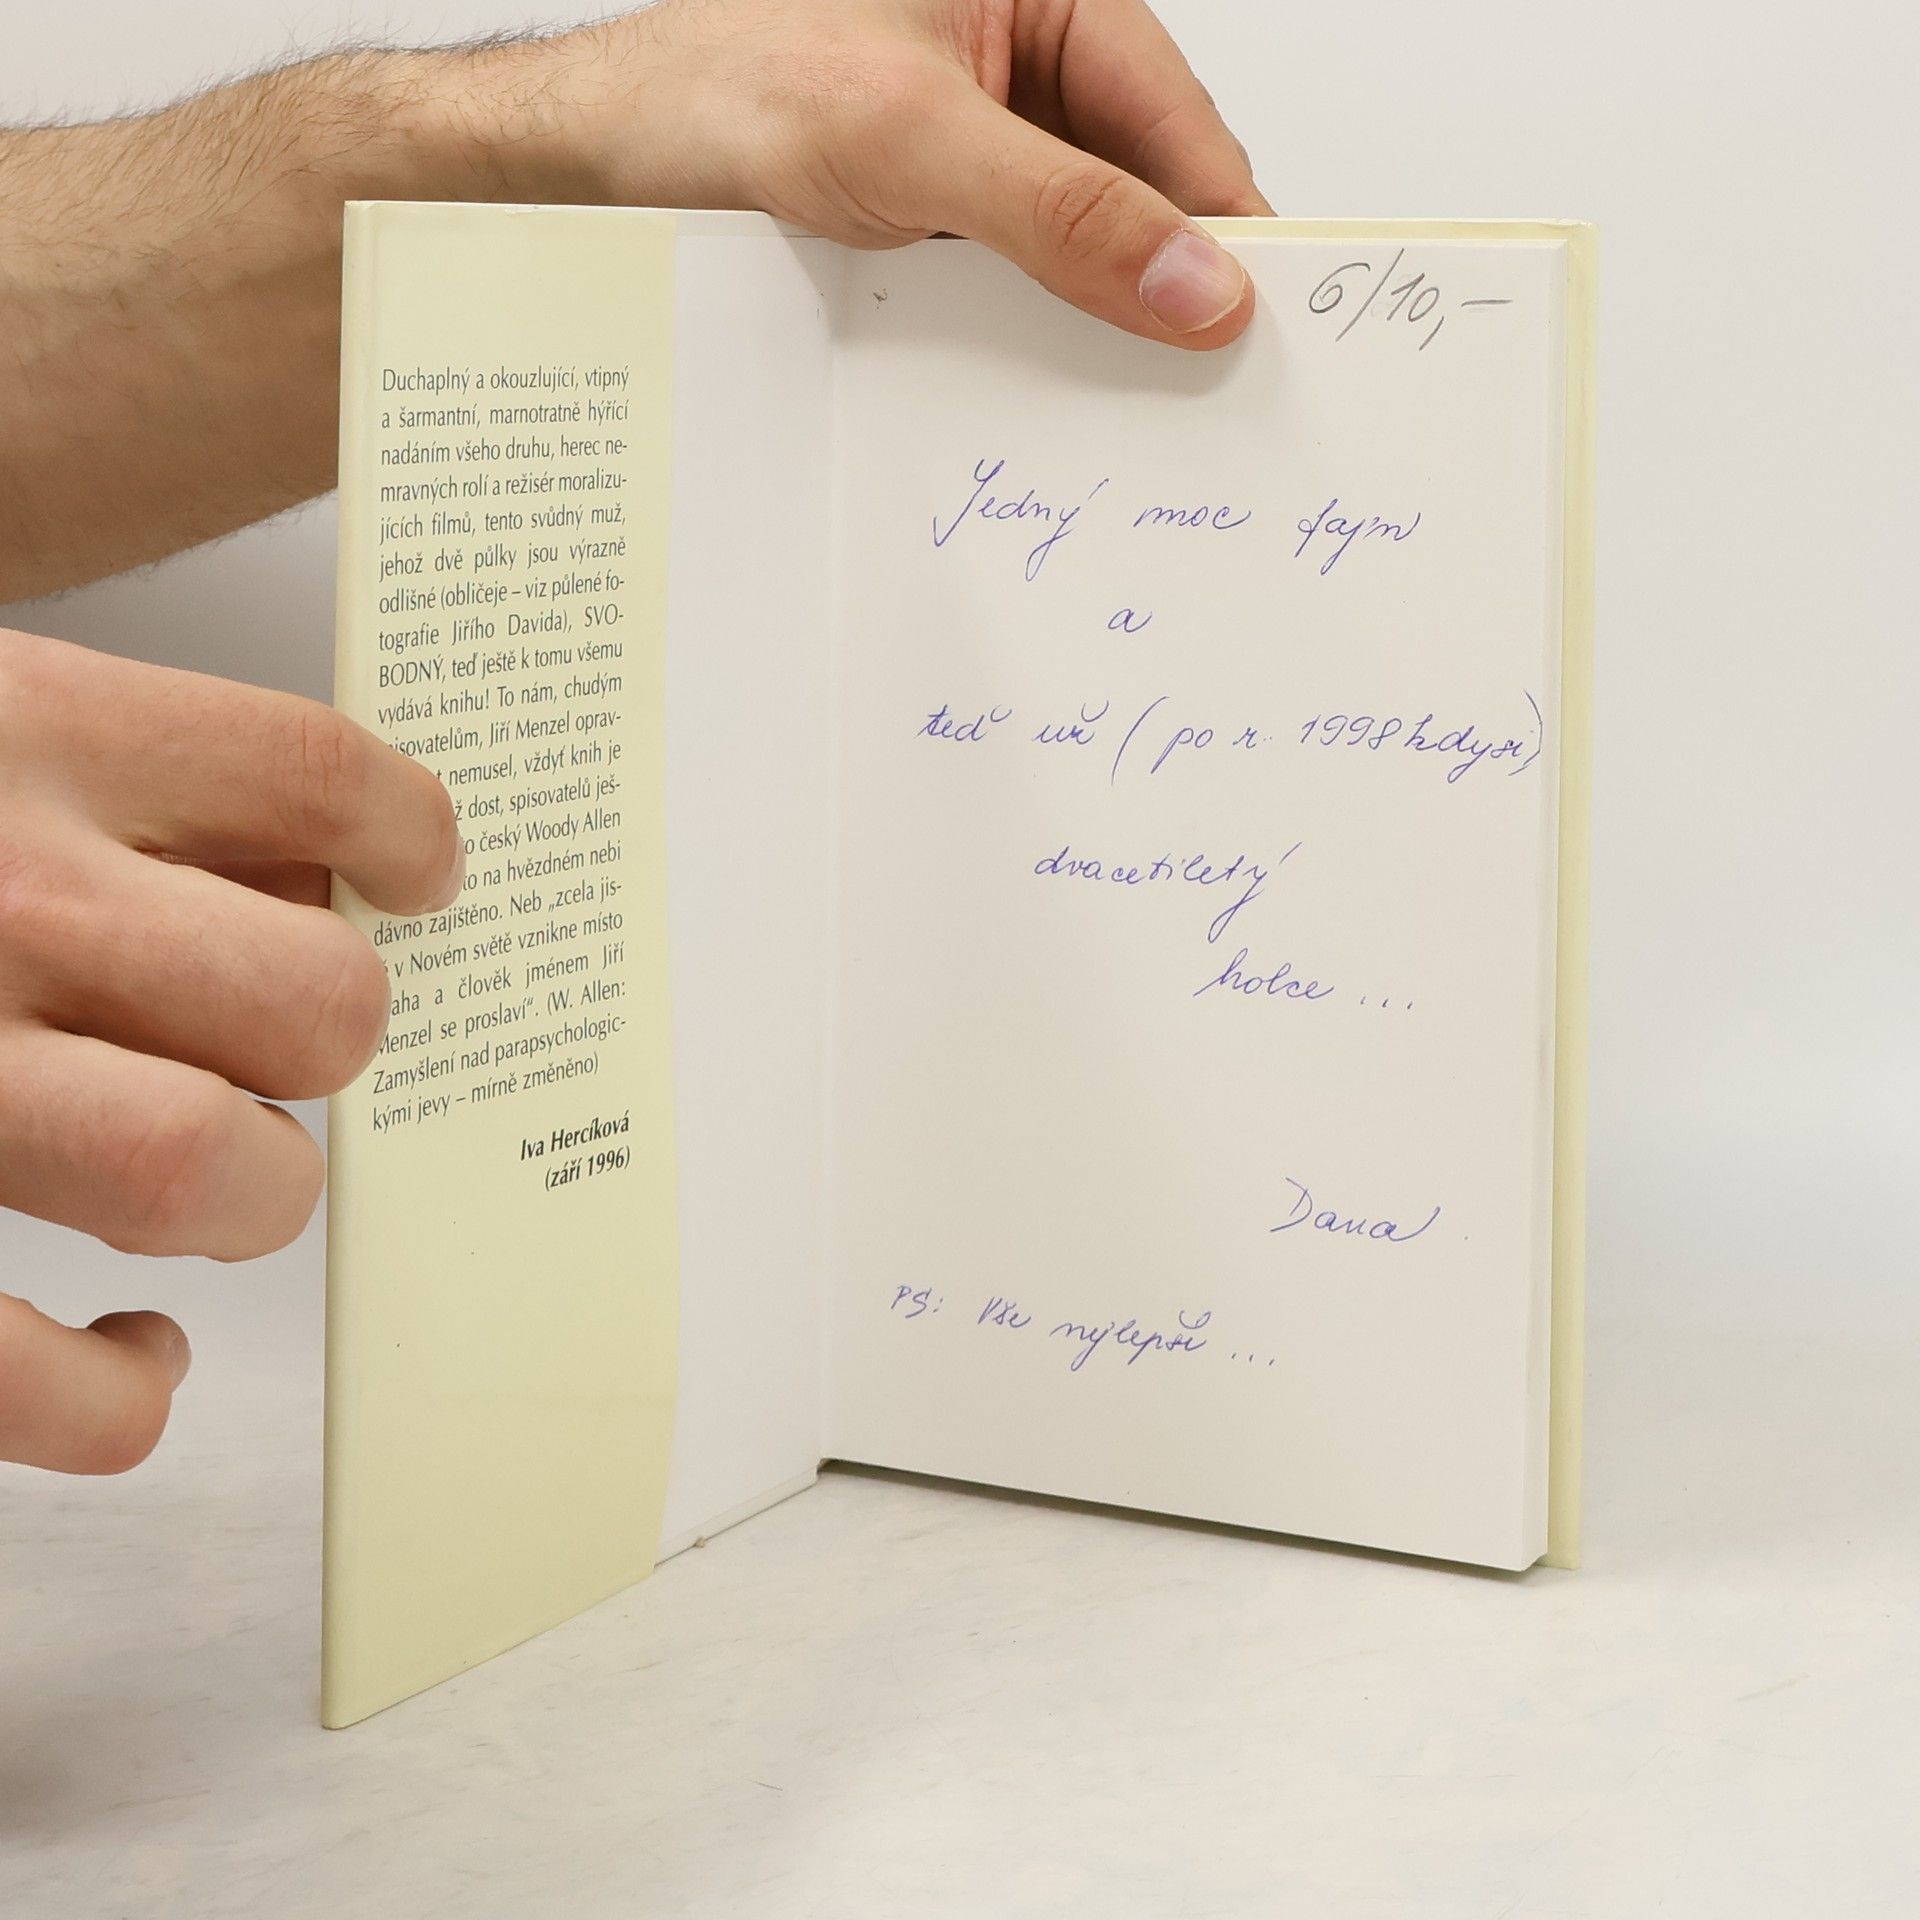 Duchaplný a okouzlující, vtipný
a šarmantní, marnotratně hýřící
nadáním všeho druhu, herec ne-
mravných rolí a režisér moralizu-
jících filmů, tento svůdný muž,
jehož dvě půlky jsou výrazně
odlišné (obličeje – viz půlené fo-
tografie Jiřího Davida), SVO-
BODNÝ, teď ještě k tomu všemu
vydává knihu! To nám, chudým
isovatelům, Jiří Menzel oprav-
t nemusel, vždyť knih je
ž dost, spisovatelů ješ-
o český Woody Allen
to na hvězdném nebi
dávno zajištěno. Neb „zcela jis-
v Novém světě vznikne místo
aha a člověk jménem Jiří
Menzel se proslaví“. (W. Allen:
Zamyšlení nad parapsychologic-
kými jevy – mírně změněno)
Iva Hercíková
(září 1996)
6/10,—
Jedný moc fajn
a
teď už (po r. 1998 kdysi)
dvacetiletý
holce ...
Dana.
PS: Vše nejlepší ...